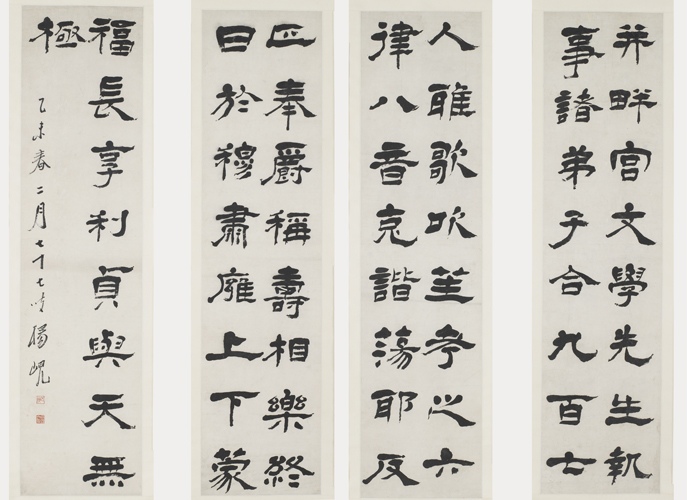 并畔宮文學先生執
事諸弟子合九百七
人雅歌吹笙考之六
律八音克諧蕩耶反
正奉爵稱壽相樂終
日於穆肅廱上下蒙
福長享利貞與天無
極
乙未春二月七十七叟楊峴